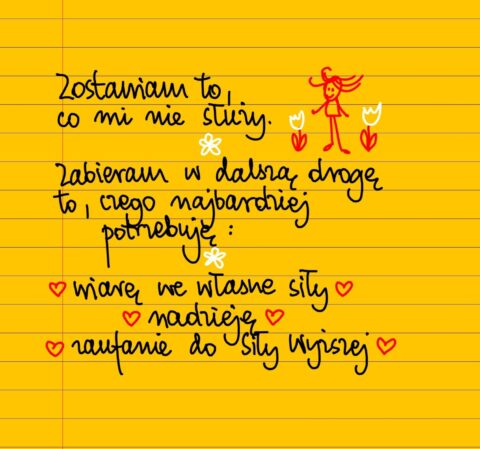 Zostawiam to,
co mi nie służy.
Zabieram w dalszą drogę
to, czego najbardziej
potrzebuję:
wiarę we własne siły
nadzieję
zaufanie do siły wyższej